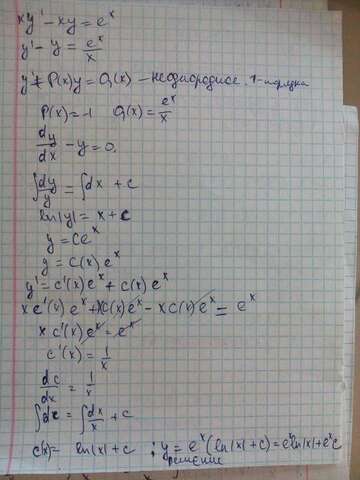 xy' - xy = e^x
y' - y = e^x/x
y' + P(x)y = Q(x) - неоднородное. 1-порядка
P(x) = -1 Q(x) = e^x/x
dy/dx - y = 0.
∫dy/y = ∫dx + c
ln|y| = x + c
y = ce^x
y = c(x)e^x
y' = c'(x)e^x + c(x)e^x
xc'(x)e^x + xc(x)e^x - xc(x)e^x = e^x
xc'(x)e^x = e^x
c'(x) = 1/x
dc/dx = 1/x
∫dc = ∫dx/x + c
c(x) = ln|x| + c ; y = e^x(ln|x| + c) = e^x ln|x| + e^x c
решение